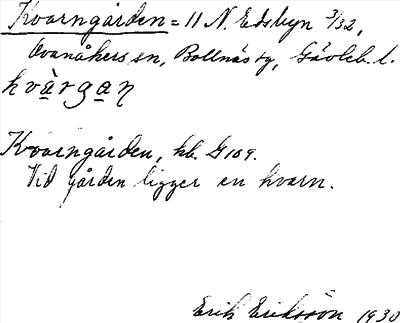 Kvarngården = 11 N. Edsbyn 3/32,
Ovanåkers sn, Bollnäs tg, Gävleb. l.
kvàrgaɳ
Kvarngården, kb. G 109.
Vid gården ligger en kvarn.
Erik Eriksson 1930